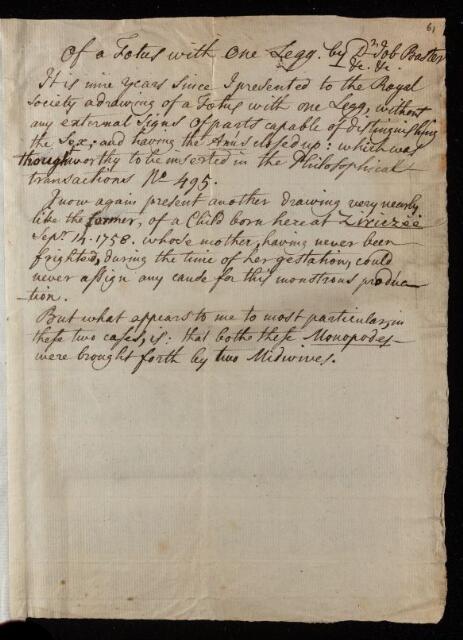 61
Of a Fœtus with one Legg. by Dr. Job Baster
&c. &c.
It is nine years since I presented to the Royal
Society a drawing of a Fœtus with one Legg, without
any external signs of parts capable of distinguishing
the Sex; and having the Anus closed up: which was
though worthy to be inserted in the Philosophical
transactions No 495.
I now again present another drawing very nearly
like the former, of a Child born here at Ziriczée
Sept. 14. 1758. whose mother, having never been
frighted, during the time of her gestation, could
never assign any cause for this monstrous produc–
–tion.
But what appears to me to most particular, in
these two cases, is: that bothe these Monopodes
were brought forth by two Midwives.